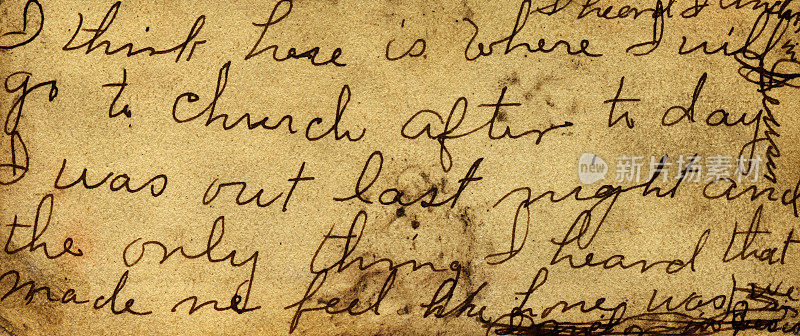 I heard I
I think here is where I will
go to church after to day
I was out last night and
the only thing I heard that
made me feel like home was
new 新片场素材